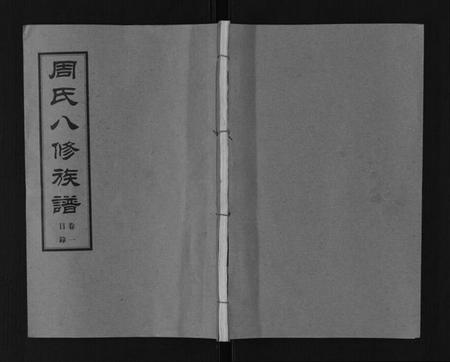 周氏八修族譜
卷一
目錄